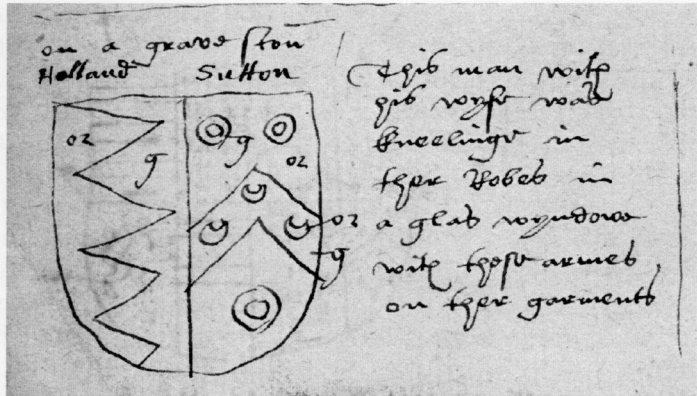 on a grave ston
Holland Sutton
or
g
g
or
or
g
This man with
his wyfe was
kneelinge in
ther Robes in
a glas wyndowe
with these armes
on ther garments